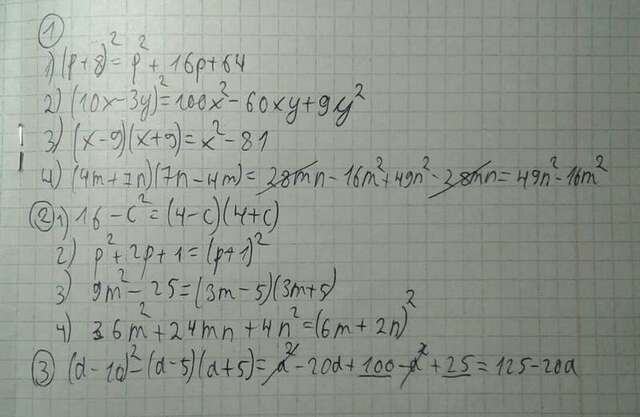 ①
1) (p+8)² = p² + 16p + 64
2) (10x-3y)² = 100x² - 60xy + 9y²
3) (x-9)(x+9) = x² - 81
4) (4m+7n)(7n-4m) = 28mn - 16m² + 49n² - 28mn = 49n² - 16m²
② 1) 16 - c² = (4-c)(4+c)
2) p² + 2p + 1 = (p+1)²
3) 9m² - 25 = (3m-5)(3m+5)
4) 36m² + 24mn + 4n² = (6m + 2n)²
③ (a-10)² - (a-5)(a+5) = a² - 20a + 100 - a² + 25 = 125 - 20a